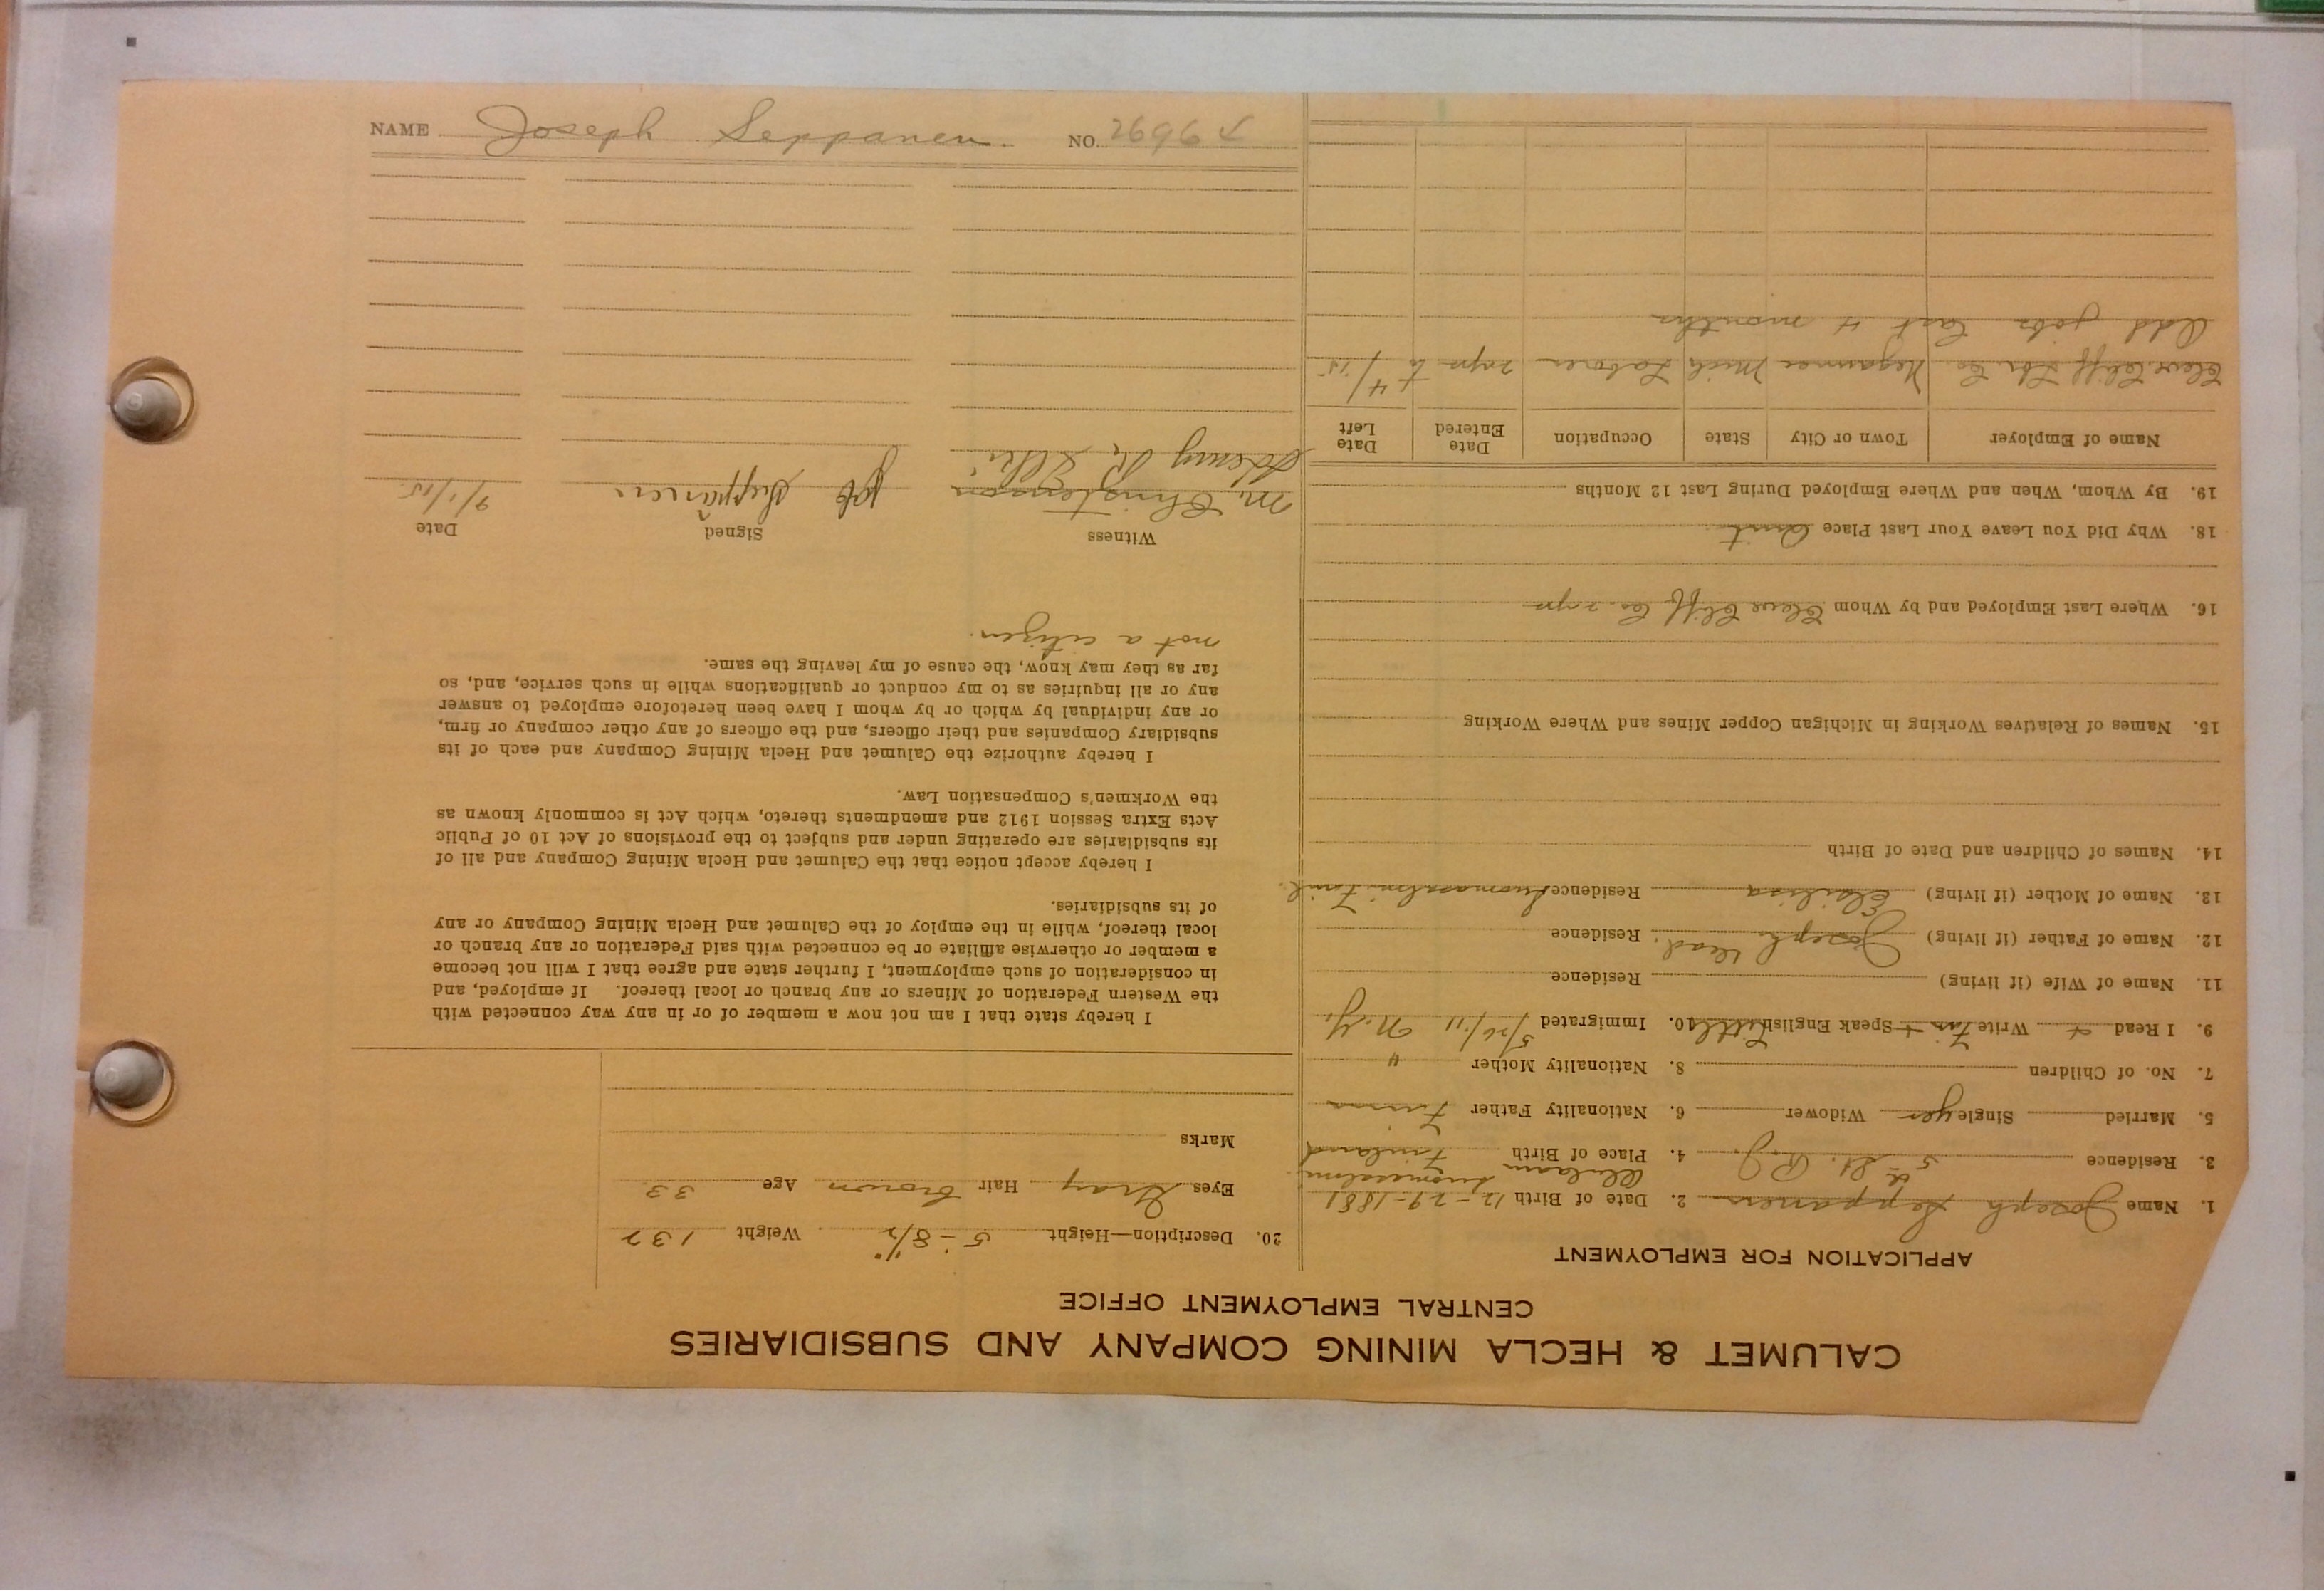 CALUMET & HECLA MINING COMPANY AND SUBSIDIARIES
CENTRAL EMPLOYMENT OFFICE
APPLICATION FOR EMPLOYMENT
1. Name Joseph Seppanen 2. Date of Birth 12-29-1881
3. Residence 5th St. R.J. 4. Place of Birth Suomussalmi Finland
5. Married Single yes Widower 6. Nationality Father Finn
7. No. of Children 8. Nationality Mother "
9. I Read + Write Fin + Speak English Little 10. Immigrated 5/26/11 N.Y.
11. Name of Wife (if living) Residence
12. Name of Father (if living) Joseph dead. Residence
13. Name of Mother (if living) Residence Suomussalmi Finl.
14. Names of Children and Date of Birth
15. Names of Relatives Working in Michigan Copper Mines and Where Working
16. Where Last Employed and by Whom Cleve Cliff Co. 2 yrs
18. Why Did You Leave Your Last Place Quit
19. By Whom, When and Where Employed During Last 12 Months
Name of Employer Town or City State Occupation Date Entered Date Left
Cleve. Cliff Co. Negaunee Mich Laborer 2 yrs to 4/15
Odd jobs last 4 months
20. Description—Height 5'-8 1/2" Weight 132
Eyes Gray Hair brown Age 33
Marks
I hereby state that I am not now a member of or in any way connected with
the Western Federation of Miners or any branch or local thereof. If employed, and
in consideration of such employment, I further state and agree that I will not become
a member or otherwise affiliate or be connected with said Federation or any branch or
local thereof, while in the employ of the Calumet and Hecla Mining Company or any
of its subsidiaries.
I hereby accept notice that the Calumet and Hecla Mining Company and all of
its subsidiaries are operating under and subject to the provisions of Act 10 of Public
Acts Extra Session 1912 and amendments thereto, which Act is commonly known as
the Workmen's Compensation Law.
I hereby authorize the Calumet and Hecla Mining Company and each of its
subsidiary Companies and their officers, and the officers of any other company or firm,
or any individual by which or by whom I have been heretofore employed to answer
any or all inquiries as to my conduct or qualifications while in such service, and, so
far as they may know, the cause of my leaving the same.
not a citizen.
Witness Signed Date
M. Christenson Seppänen 9/1/15.
Henry
NAME Joseph Seppanen. NO. 26964